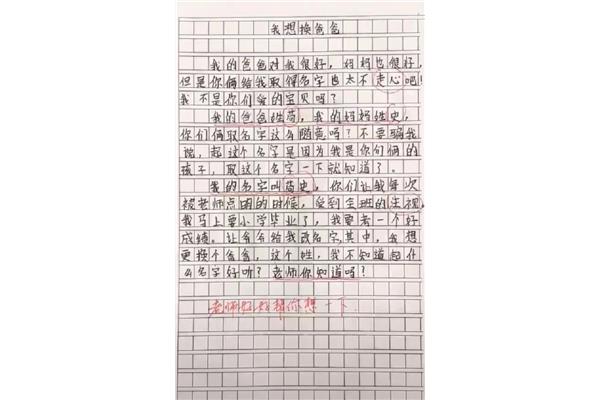 我想换爸爸
我的爸爸对我很好，妈妈也很好，
但是你俩给我取得名字也太不走心吧！
我不是你们爱的宝贝吗？
我的爸爸姓苟，我的妈妈姓史，
你们俩取名字这么随意吗？不要骗我
说，起这个名字是因为我是你们俩的
孩子，取这个名字一下就知道了。
我的名字叫苟史，你们让我每次
被老师点名的时候，受到全班的注视，
我马上要小学毕业了，我要考一个好
成绩。让爸爸给我改名字，其中，我想
更换个爸爸，这个姓，我不知道起什
么名字好听？老师你知道吗？
老师好好帮你想一下.